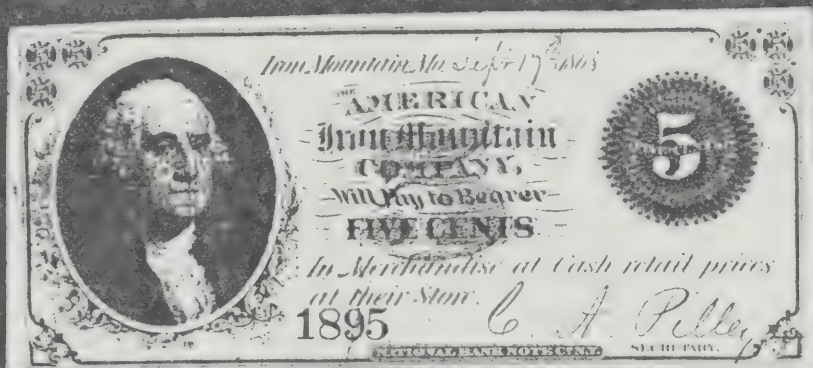 Iron Mountain, Mo. Sept 17th 1865
THE
AMERICAN
Iron Mountain
COMPANY,
Will Pay to Bearer
FIVE CENTS
In Merchandise at Cash retail prices
at their Store.
1895
C. A. Pilley
SECRETARY.
NATIONAL BANK NOTE CO. N.Y.
5
5
5
5
5
5
5